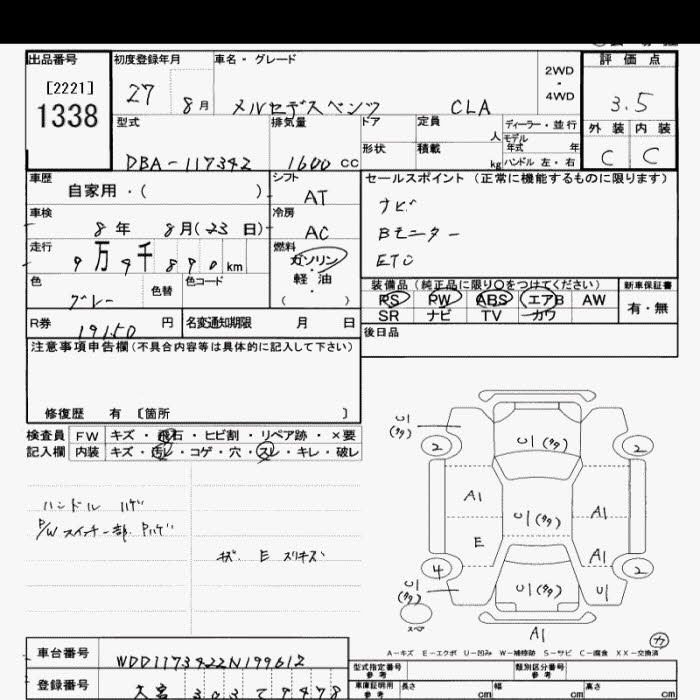 出品番号
[2221]
1338
初度登録年月
27 8月
車名・グレード
メルセデスベンツ CLA
2WD
・
4WD
評価点
3.5
外装 内装
C C
型式
DBA-117342
排気量
1600 cc
ドア
定員
人
ディーラー・並行
モデル年式 年
形状
積載
kg
ハンドル 左・右
車歴
自家用・( )
シフト
AT
セールスポイント(正常に機能するものに限ります)
ナビ
Bモニター
ETC
車検
8年 8月(23日)
冷房
AC
走行
9万9千890km
燃料
ガソリン
・
軽油
( )
色
グレー
色替
色コード
装備品(純正品に限り〇をつけてください)
PS PW ABS エアB AW
SR ナビ TV カワ
新車保証書
有・無
R券
19150円
名変通知期限 月 日
後日品
注意事項申告欄(不具合内容等は具体的に記入して下さい)
修復歴 有 〔箇所 〕
検査員
記入欄
FW キズ・飛石・ヒビ割・リペア跡・×要
内装 キズ・汚レ・コゲ・穴・スレ・キレ・破レ
ハンドル ハゲ
P/Wスイッチ部 Pハゲ
E スリキズ
U1
(タタ)
U1(タタ)
2 2
A1
A1
U1(タタ)
E
A1
4 2
U1
(タタ)
U1(タタ)
U1
スペア
A1
A-キズ E-エクボ U-凹み W-補修跡 S-サビ C-腐食 XX-交換済
車台番号
WDD1173422N199612
型式指定番号
参考
類別区分番号
参考
登録番号
303 9478
車庫証明用
参考
長さ cm
幅 cm
高さ cm